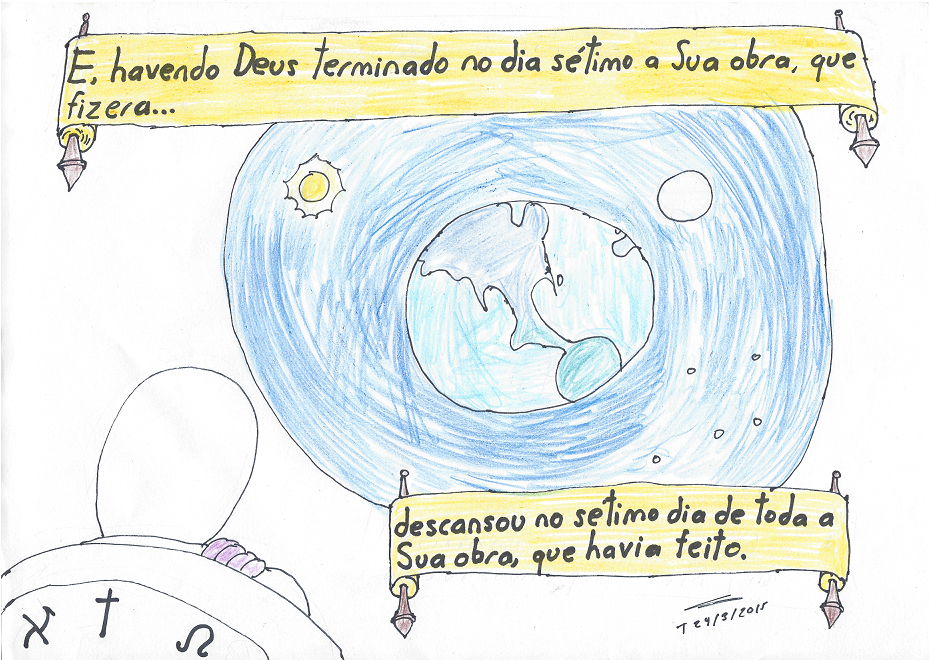 E, havendo Deus terminado no dia sétimo a Sua obra, que
fizera...
descansou no setimo dia de toda a
Sua obra, que havia feito.
א † Ω